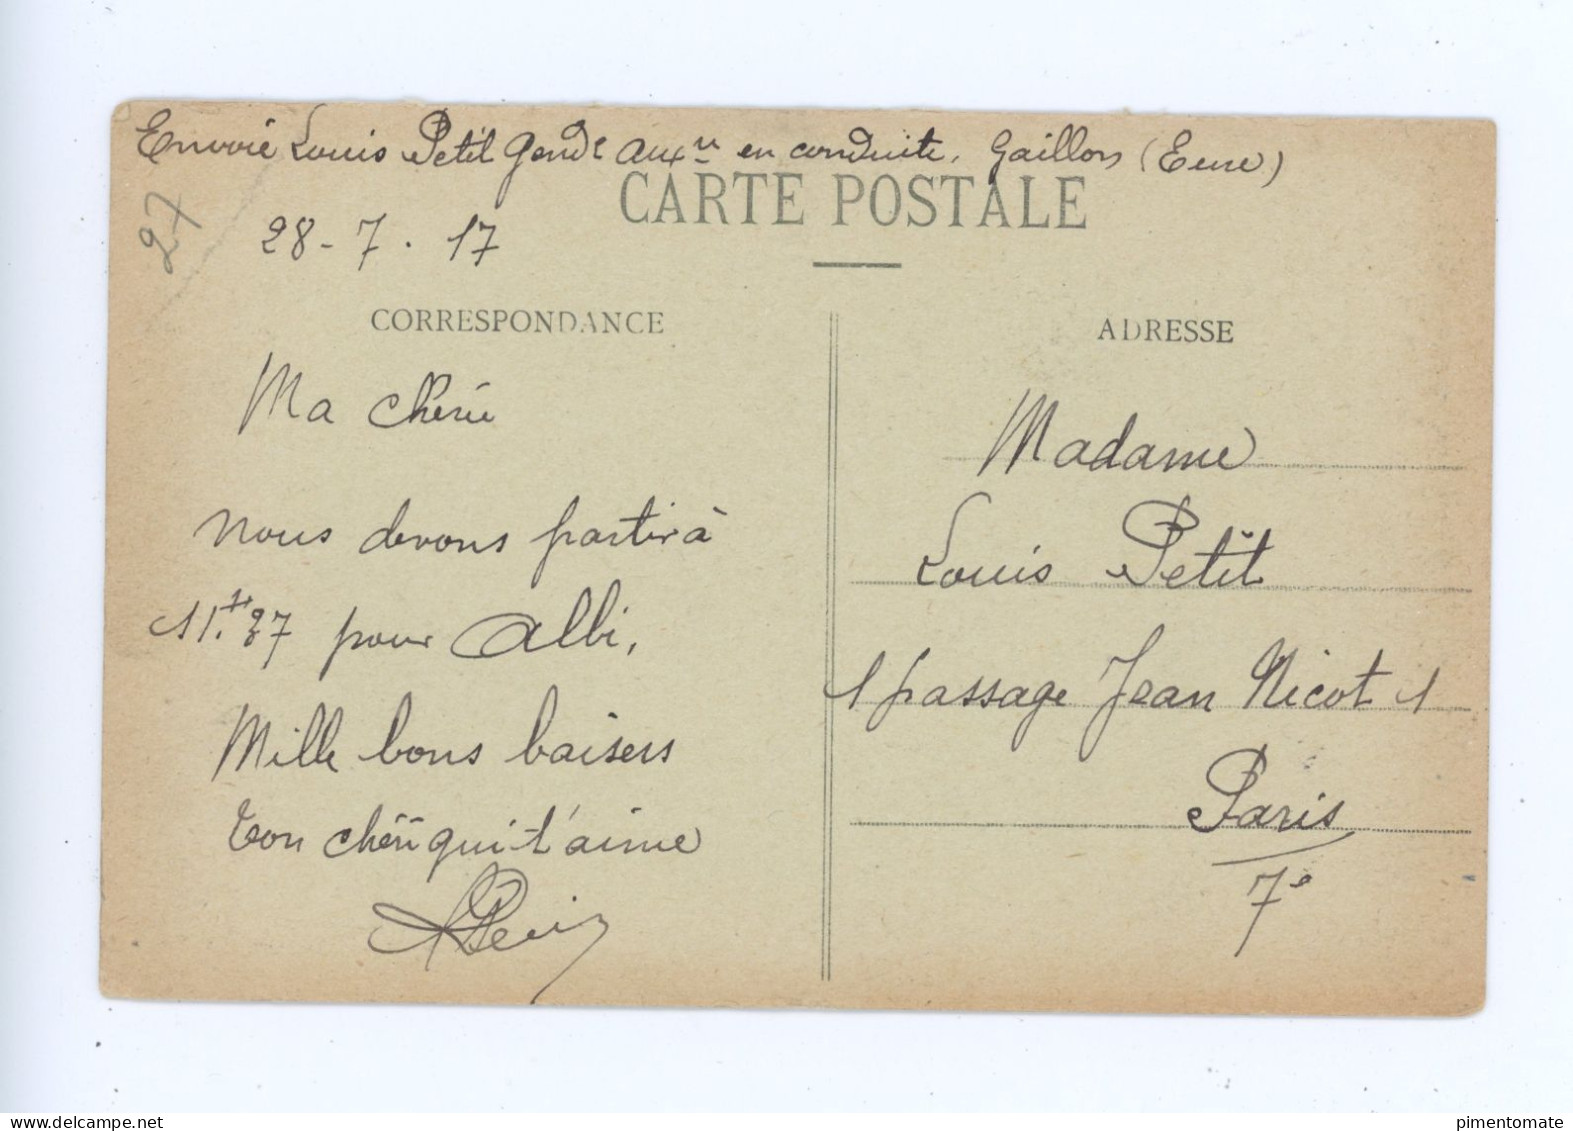 Envoie Louis Petit Gende Auxre en conduite, Gaillon (Eure)
CARTE POSTALE
27
28-7.17
CORRESPONDANCE
Ma chérie
Nous devons partir à
11.H37 pour Albi,
Mille bons baisers
ton chéri qui t'aime
ADRESSE
Madame
Louis Petit
1 passage Jean Nicot 1
Paris
7e
pimentomate